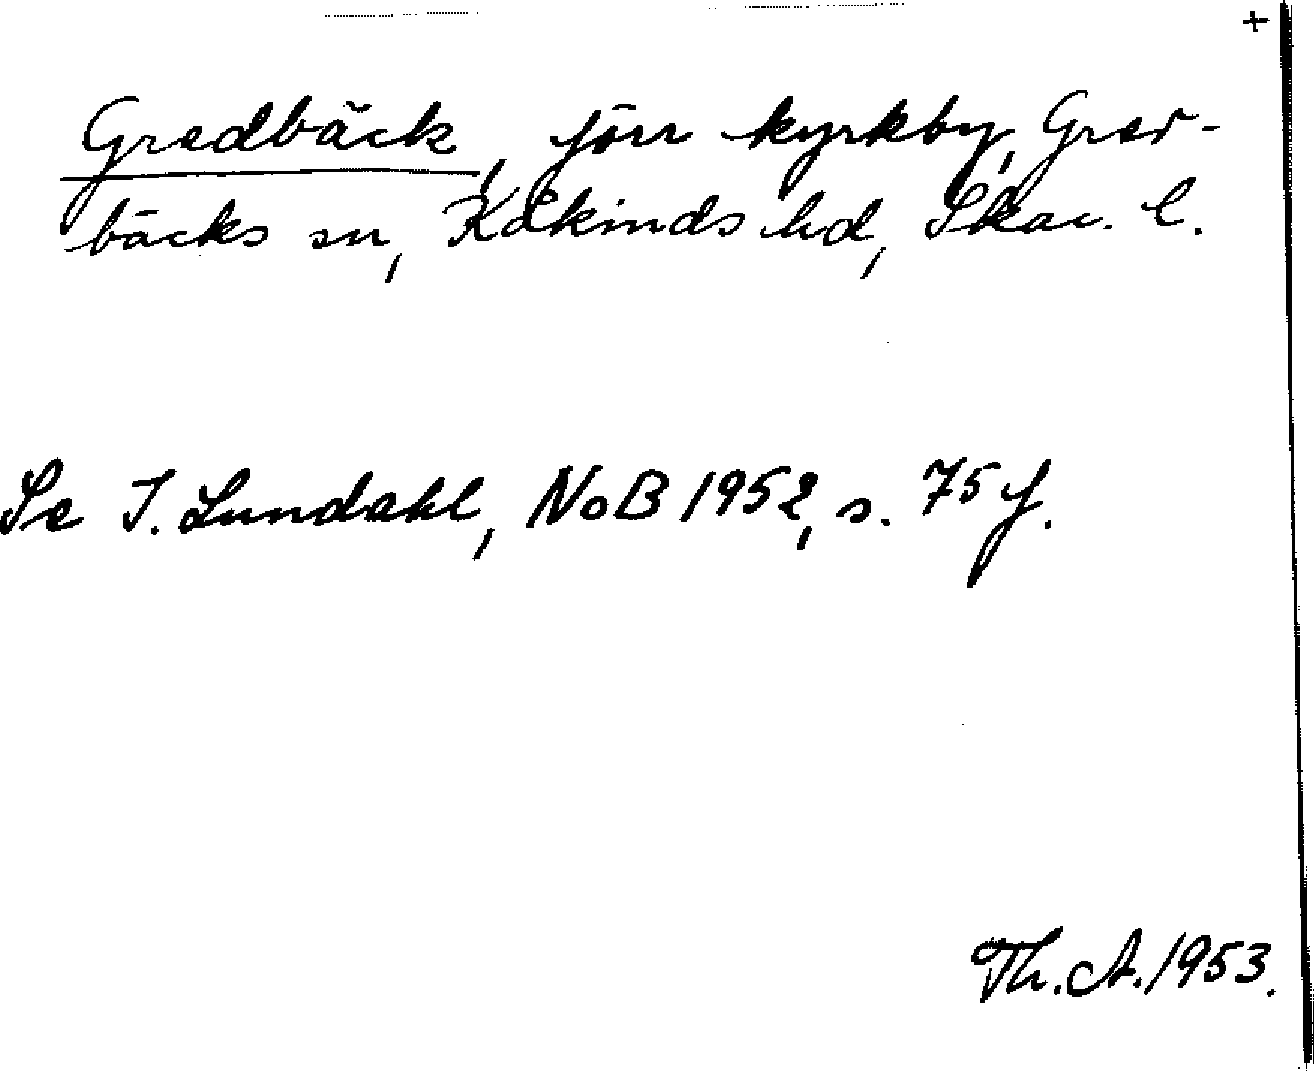 +
Gredbäck, förr kyrkby, Grev-
bäcks sn, Kåkinds hd, Skar. l.
Se I. Lundahl, NoB 1952, s. 75 f.
Th. A. 1953.